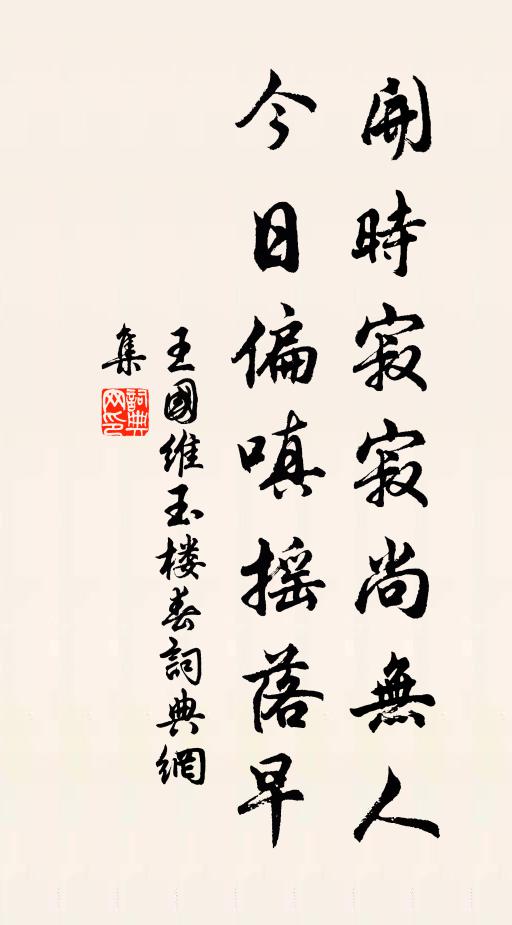 開時寂寂尚無人
今日偏嗔搖落早
王國維玉楼春詞典網
集
詞典
网印